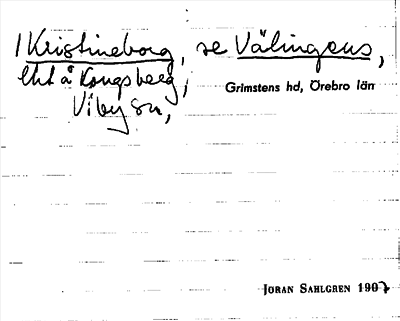 1 Kristineborg, se Välingens,
lht å Kongsberg,
Viby sn,
Grimstens hd, Örebro län
JÖRAN SAHLGREN 1907